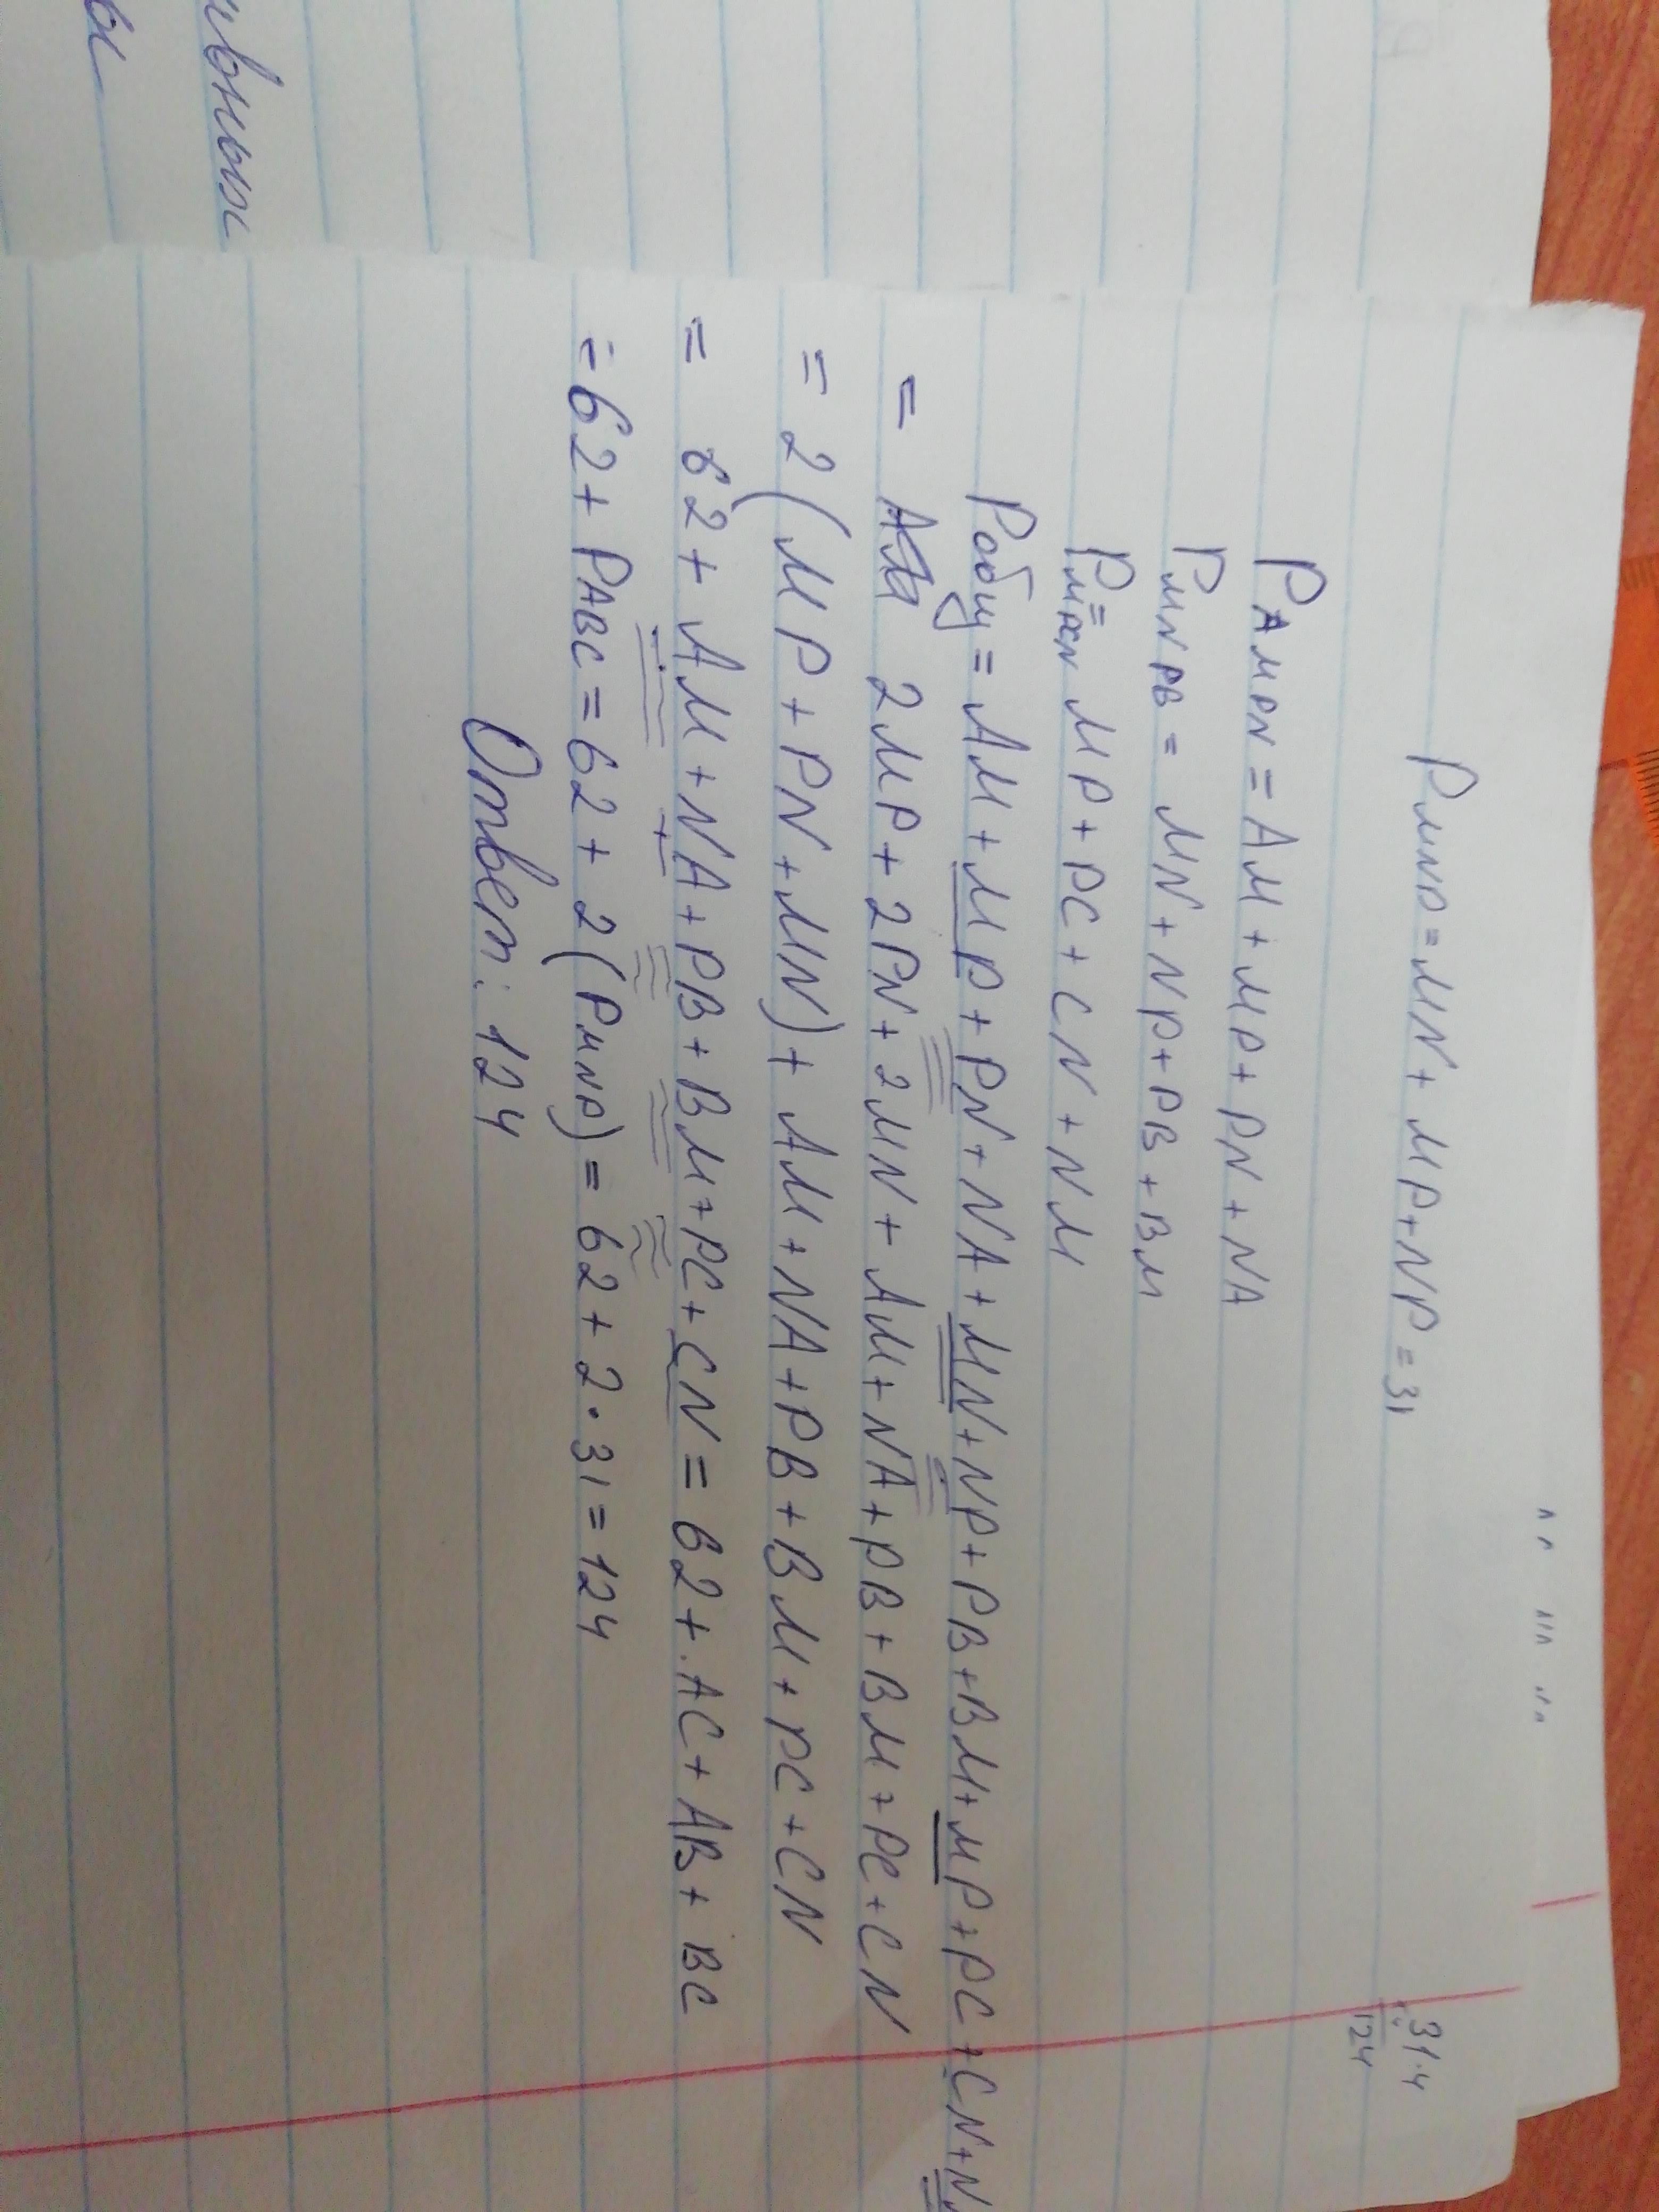 ивных
ы
31·4
124
P MNP = MN + MP + NP = 31
P AMPN = AM + MP + PN + NA
P MNPB = MN + NP + PB + BM
P MPCN = MP + PC + CN + NM
Pобщ = AM + MP + PN + NA + MN + NP + PB + BM + MP + PC + CN +
= 2MP + 2PN + 2MN + AM + NA + PB + BM + PC + CN
= 2(MP + PN + MN) + AM + NA + PB + BM + PC + CN
= 62 + AM + NA + PB + BM + PC + CN = 62 + AC + AB + BC
= 62 + PABC = 62 + 2(PMNP) = 62 + 2·31 = 124
Ответ: 124